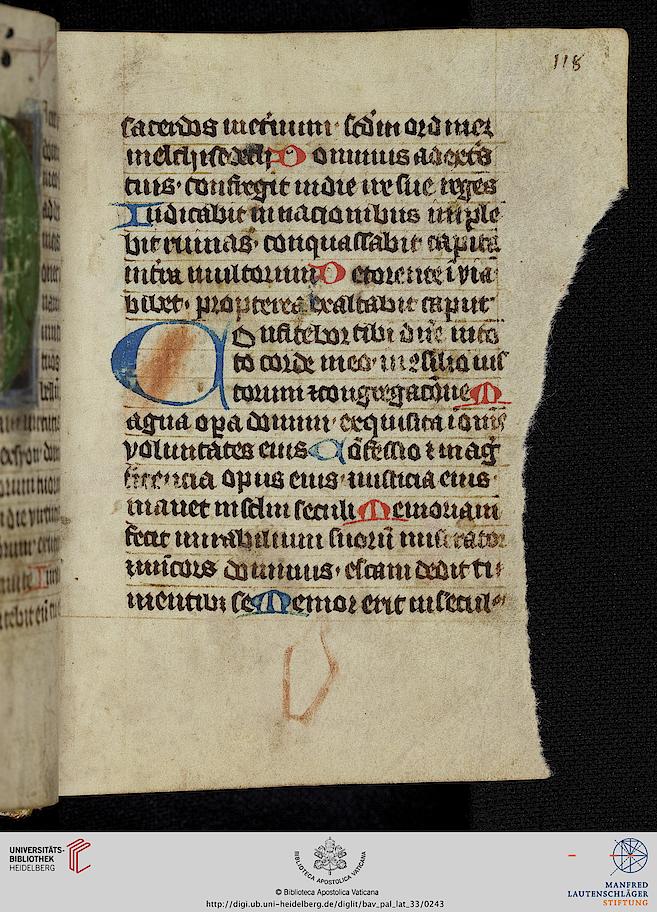 118
sacerdos in eternum · scdm ordinez
melchisedech Dominus a dextris
tuis · confregit in die ire sue reges
Iudicabit in nacionibus imple
bit ruinas · conquassabit capita
in tra multorum De torente i via
bibet · propterea exaltabit caput
Confitebor tibi dne in to
to corde meo · in consilio ius
torum ⁊ congregacõne M
agna opa domini · exquisita i omĩs
voluntates eius Cõfessio ⁊ mag
ficencia opus eius · iusticia eius
manet in sclm seculi Memoriam
fecit mirabilium suorũ miserator
⁊ miĩcors dominus · escam dedit ti
mentibz se Memor erit in secul
UNIVERSITÄTS-
BIBLIOTHEK
HEIDELBERG
BIBLIOTECA APOSTOLICA VATICANA
© Biblioteca Apostolica Vaticana
http://digi.ub.uni-heidelberg.de/diglit/bav_pal_lat_33/0243
MANFRED
LAUTENSCHLÄGER
STIFTUNG